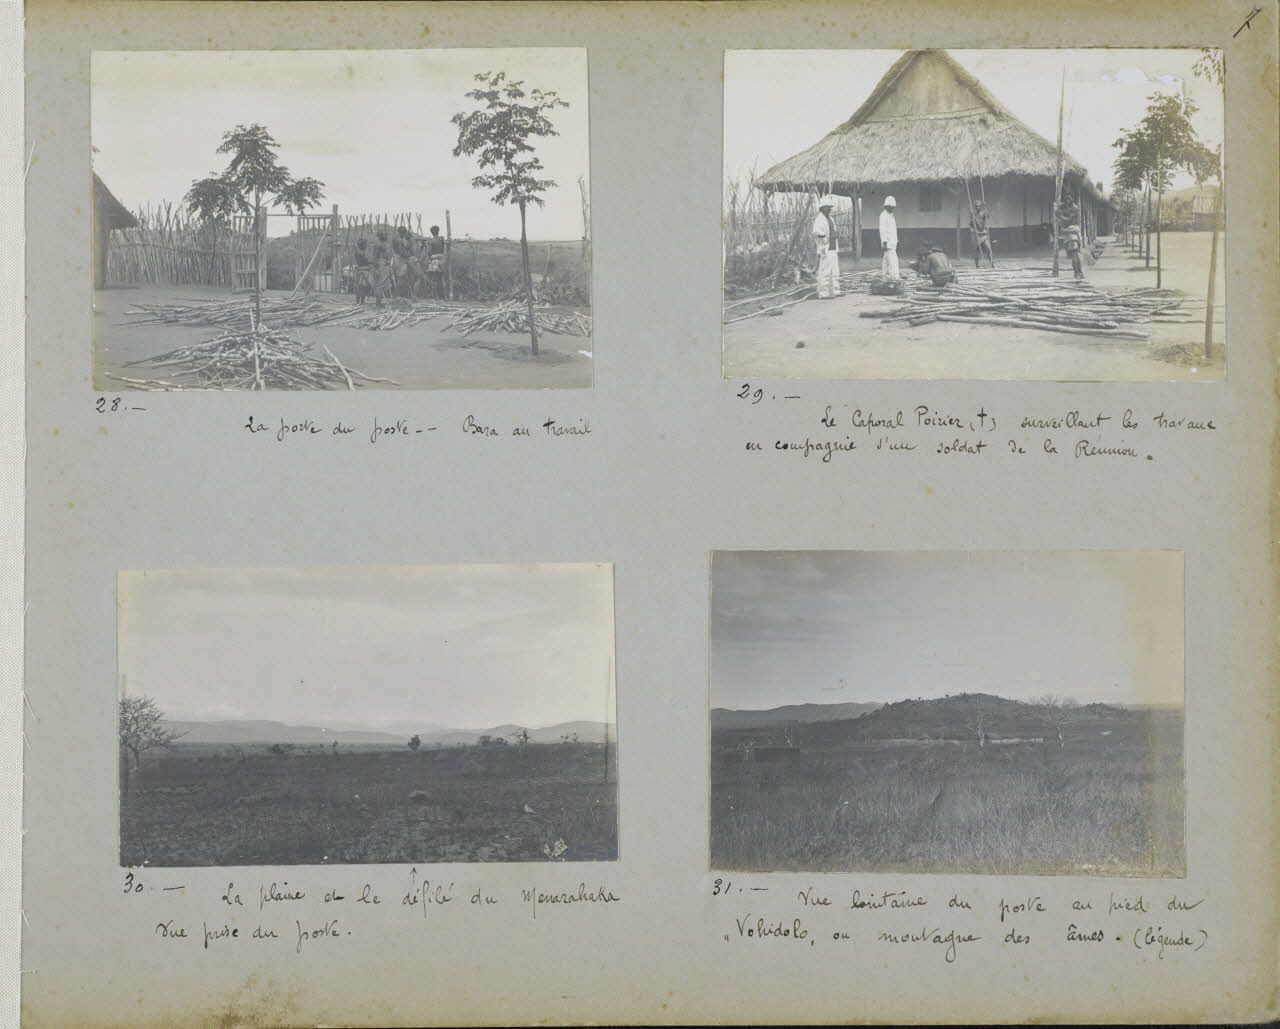 7
28. —
La porte du poste -- Bara au travail
29. —
Le Caporal Poirier (†) surveillant les travaux
en compagnie d'un soldat de la Réunion.
30 —
La plaine et le défilé du Menarahaka
Vue prise du poste.
31. —
Vue lointaine du poste au pied du
"Vohidolo„ ou montagne des âmes. (légende)